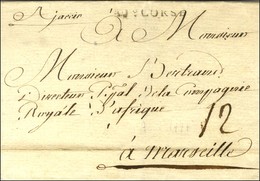 Ajaccio
AJ / CORSE
À Monsieur
Monsieur Bertrand
Directeur Ppal de la Compagnie
Royale d'afrique
12
à Marseille